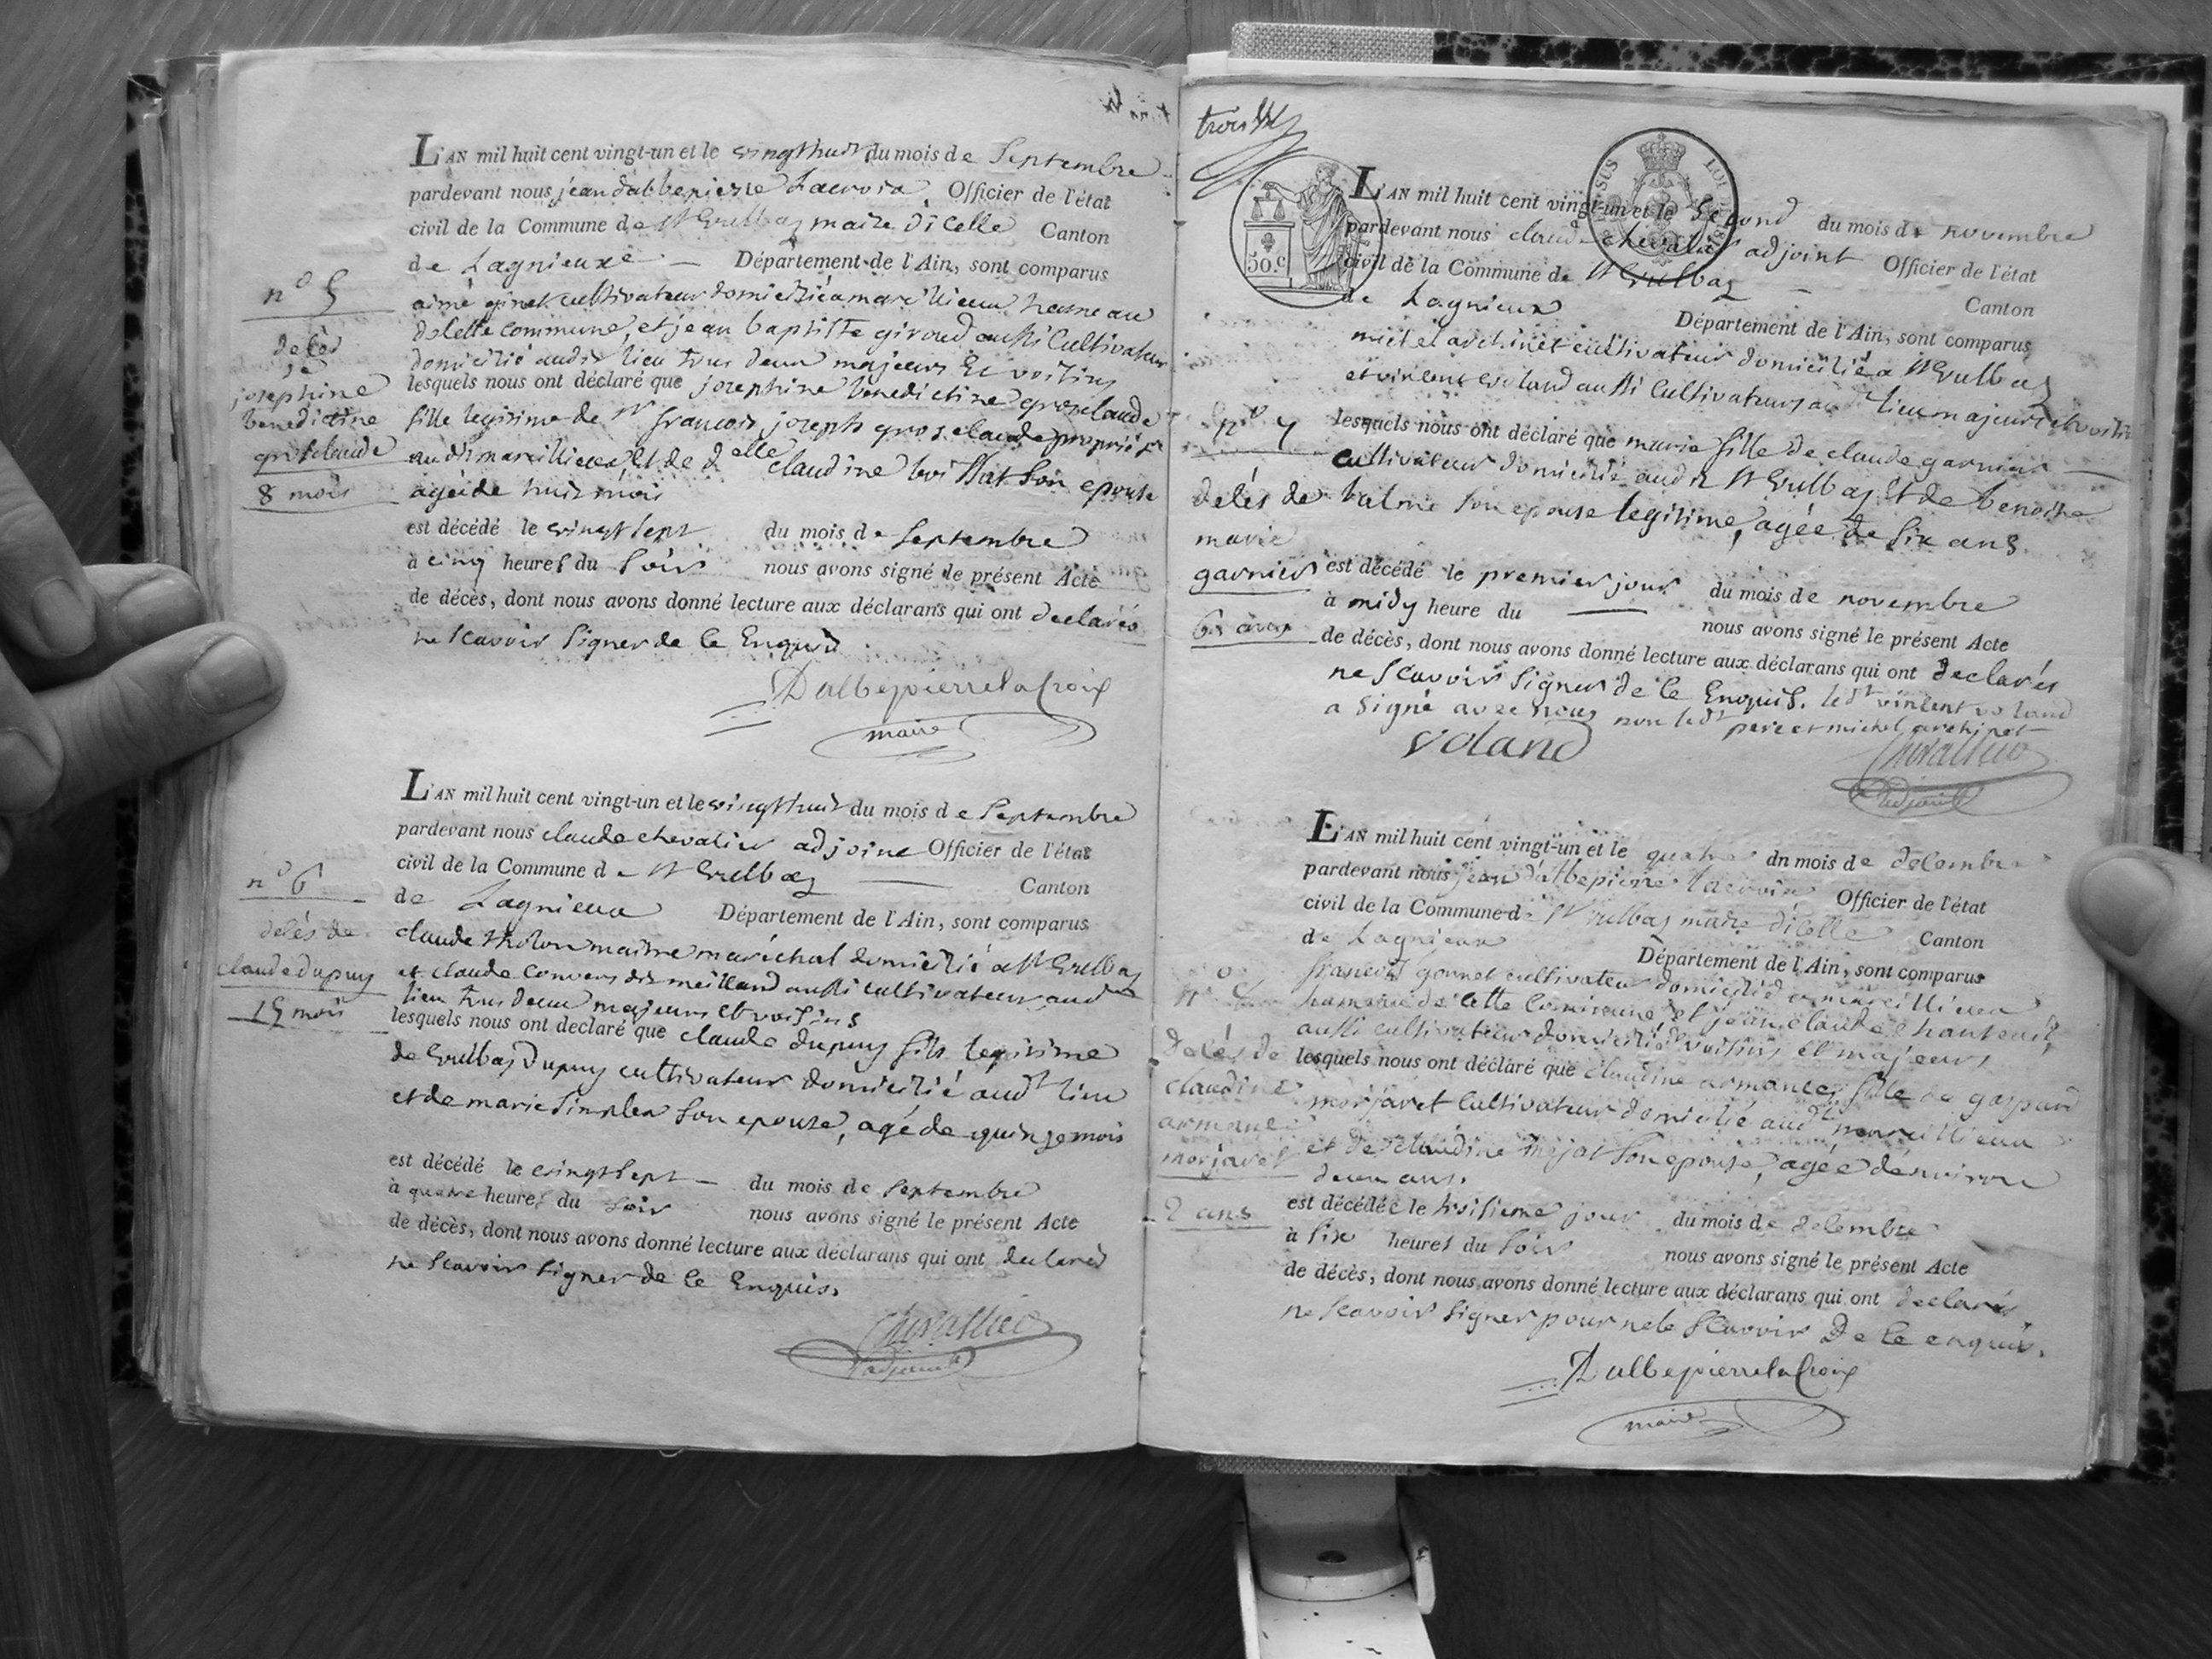 L'AN mil huit cent vingt-un et le vingthuit du mois de Septembre
pardevant nous jean dalbepierre Lacroix Officier de l'état
civil de la Commune de St Vulbas maire dicelle Canton
de Lagnieux Département de l'Ain, sont comparus
aimé ginet cultivateur domicilié a marcillieux hameau
de cette commune, et jean baptiste giroud aussi Cultivateur
domicilié audit lieu tous deux majeurs Et voisins
lesquels nous ont déclaré que josephine benedictine grosclaude
fille legitime de Sr francois joseph grosclaude propriét
aud marcillieux, Et de delle claudine boissat Son epouse
agée de huit mois
est décédé le vingt sept du mois de Septembre
à cinq heures du Soir nous avons signé le présent Acte
de décès, dont nous avons donné lecture aux déclarans qui ont declarés
ne scavoir Signer de ce Enquis
Dalbepierrelacroix
maire
n° 5
décès
de
josephine
benedictine
grosclaude
8 mois
L'AN mil huit cent vingt-un et le vingthuit du mois de Septembre
pardevant nous claude chevalier adjoint Officier de l'état
civil de la Commune de St Vulbas Canton
de Lagnieux Département de l'Ain, sont comparus
claude tholon maitre maréchal domicilié a St Vulbas
et claude Convers dit meilland aussi cultivateur aud
lieu tous deux majeurs Et voisins
lesquels nous ont declaré que claude dupuy fils legitime
de Vulbas Dupuy cultivateur domicilié audt lieu
et de marie Simplex Son epouse, agé de quinze mois
est décédé le vingt sept du mois de Septembre
à quatre heures du soir nous avons signé le présent Acte
de décès, dont nous avons donné lecture aux déclarans qui ont declarés
ne Scavoir signer de ce Enquis.
Chevallier
adjoint
n° 6
décès de
claude dupuy
15 mois
trois
50.c
SUS LOI
L'AN mil huit cent vingt-un et le Second du mois de novembre
pardevant nous claude chevalier adjoint Officier de l'état
civil de la Commune de St Vulbas Canton
de Lagnieux Département de l'Ain, sont comparus
michel archinet cultivateur domicilié a St Vulbas
et vincent voland aussi Cultivateur au dt lieu majeurs et voisins
lesquels nous ont déclaré que marie fille de claude garnier
cultivateur domicilié audit St Vulbas Et de benoite
balme Son epouse legitime, agée de Six ans
est décédé le premier jour du mois de novembre
à midy heure du nous avons signé le présent Acte
de décès, dont nous avons donné lecture aux déclarans qui ont declarés
ne Scavoir Signer de ce Enquis. ledt vincent voland
a Signé avec nous non ledt pere et michel archinet
voland
Chevallier
adjoint
n° 7
décès de
marie
garnier
6 ans
L'AN mil huit cent vingt-un et le quatre dn mois de decembre
pardevant nous jean dalbepierre lacroix Officier de l'état
civil de la Commune de St Vulbas maire dicelle Canton
de Lagnieux Département de l'Ain, sont comparus
francois gonnet cultivateur domicilié a marcillieux
hameau de cette Commune et jean claude chanteur
aussi cultivateur domicilié voisins et majeurs
lesquels nous ont déclaré que claudine armance, fille de gaspard
morjaret Cultivateur domicilié audt marcillieux
et de claudine mejat Son epouse, agée dénviron
deux ans.
est décédée le troisieme jour du mois de decembre
à Six heures du Soir nous avons signé le présent Acte
de décès, dont nous avons donné lecture aux déclarans qui ont declarés
ne scavoir Signer pour ne le Scavoir De ce enquis.
Dalbepierrelacroix
maire
n°
Décès de
claudine
armance
morjaret
2 ans